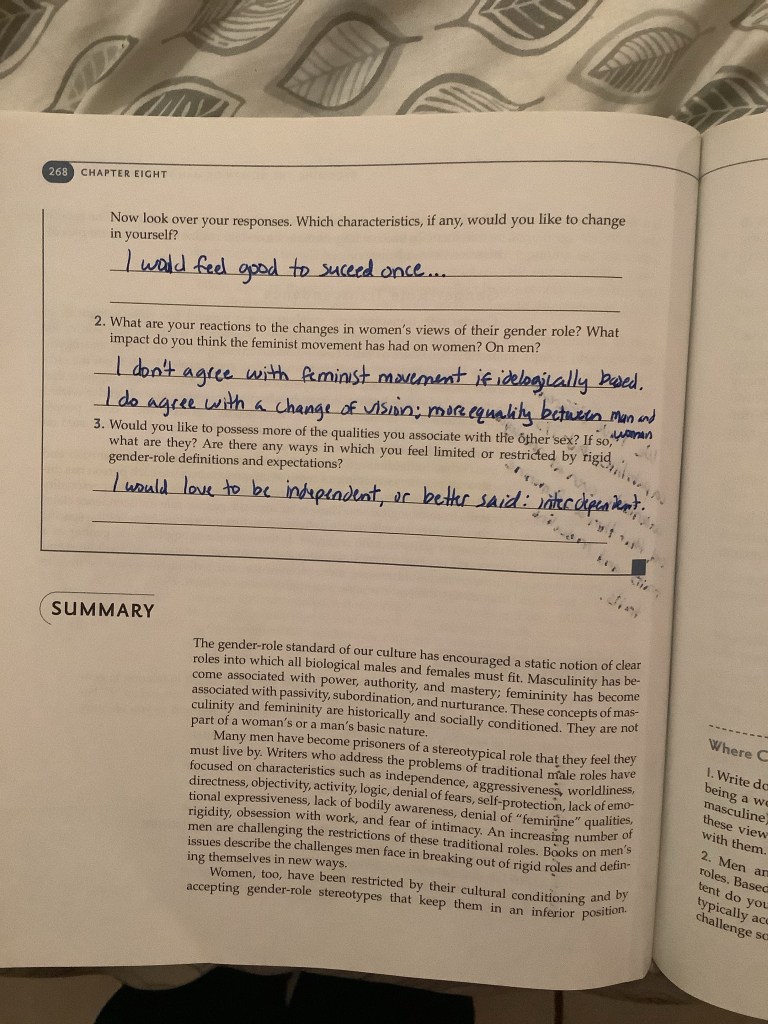 268 CHAPTER EIGHT
Now look over your responses. Which characteristics, if any, would you like to change
in yourself?
I would feel good to suceed once...
2. What are your reactions to the changes in women's views of their gender role? What
impact do you think the feminist movement has had on women? On men?
I don't agree with feminist movement if idelogically based.
I do agree with a change of vision; more equality between man and
woman
3. Would you like to possess more of the qualities you associate with the other sex? If so,
what are they? Are there any ways in which you feel limited or restricted by rigid
gender-role definitions and expectations?
I would love to be independent, or better said: interdependent.
SUMMARY
The gender-role standard of our culture has encouraged a static notion of clear
roles into which all biological males and females must fit. Masculinity has be-
come associated with power, authority, and mastery; femininity has become
associated with passivity, subordination, and nurturance. These concepts of mas-
culinity and femininity are historically and socially conditioned. They are not
part of a woman's or a man's basic nature.
Many men have become prisoners of a stereotypical role that they feel they
must live by. Writers who address the problems of traditional male roles have
focused on characteristics such as independence, aggressiveness, worldliness,
directness, objectivity, activity, logic, denial of fears, self-protection, lack of emo-
tional expressiveness, lack of bodily awareness, denial of "feminine" qualities,
rigidity, obsession with work, and fear of intimacy. An increasing number of
men are challenging the restrictions of these traditional roles. Books on men's
issues describe the challenges men face in breaking out of rigid roles and defin-
ing themselves in new ways.
Women, too, have been restricted by their cultural conditioning and by
accepting gender-role stereotypes that keep them in an inferior position.
Where C
1. Write do
being a wo
masculine)
these view
with them.
2. Men an
roles. Based
tent do you
typically acc
challenge so